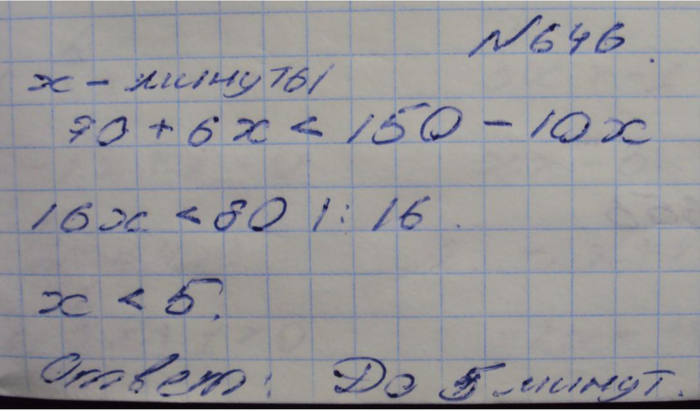 №646.
x - минуты
70 + 6x < 150 - 10x
16x < 80 |: 16.
x < 5.
Ответ: До 5 минут.